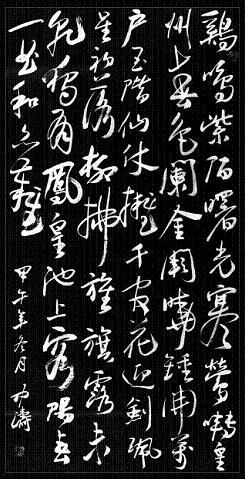 鷄鳴紫陌曙光寒鶯囀皇
州春色闌金闕曉鐘開萬
戶玉階仙仗擁千官花迎劍珮
星初落柳拂旌旗露未
乾獨有鳳皇池上客陽春
一曲和皆難
甲午年冬月 濤